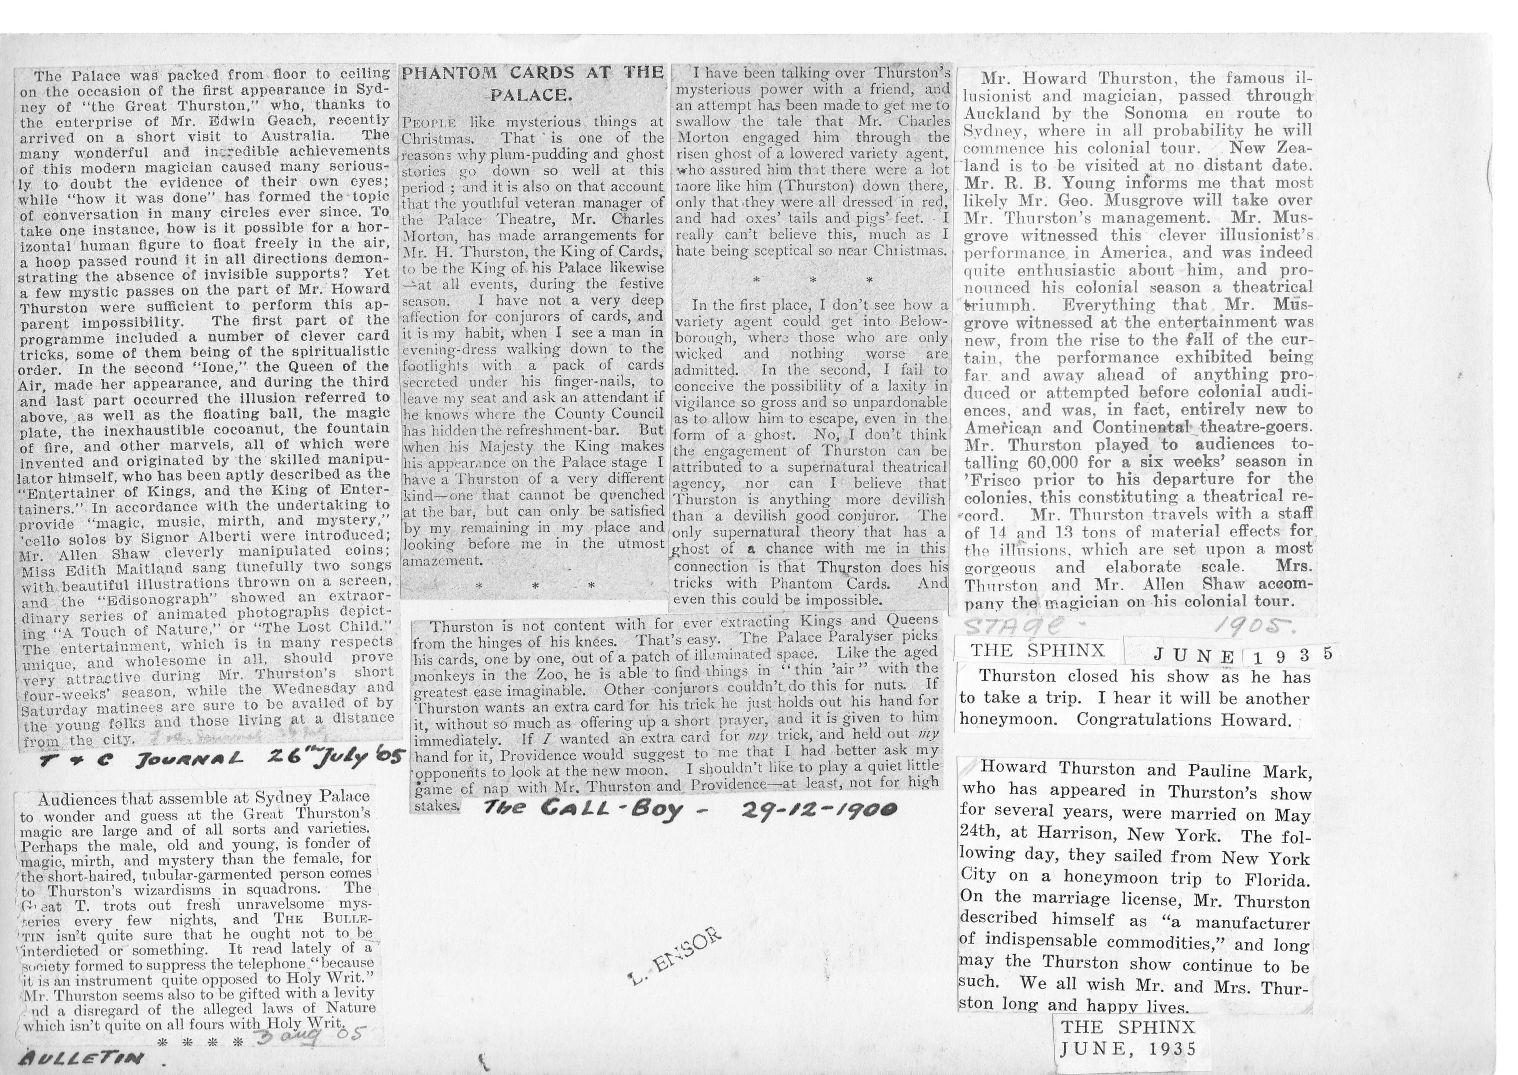 The Palace was packed from floor to ceiling
on the occasion of the first appearance in Syd-
ney of "the Great Thurston," who, thanks to
the enterprise of Mr. Edwin Geach, recently
arrived on a short visit to Australia. The
many wonderful and incredible achievements
of this modern magician caused many serious-
ly to doubt the evidence of their own eyes;
while "how it was done" has formed the topic
of conversation in many circles ever since. To
take one instance, how is it possible for a hor-
izontal human figure to float freely in the air,
a hoop passed round it in all directions demon-
strating the absence of invisible supports? Yet
a few mystic passes on the part of Mr. Howard
Thurston were sufficient to perform this ap-
parent impossibility. The first part of the
programme included a number of clever card
tricks, some of them being of the spiritualistic
order. In the second "Ione," the Queen of the
Air, made her appearance, and during the third
and last part occurred the illusion referred to
above, as well as the floating ball, the magic
plate, the inexhaustible cocoanut, the fountain
of fire, and other marvels, all of which were
invented and originated by the skilled manipu-
lator himself, who has been aptly described as the
"Entertainer of Kings, and the King of Enter-
tainers." In accordance with the undertaking to
provide "magic, music, mirth, and mystery,"
'cello solos by Signor Alberti were introduced;
Mr. Allen Shaw cleverly manipulated coins;
Miss Edith Maitland sang tunefully two songs
with beautiful illustrations thrown on a screen,
and the "Edisonograph" showed an extraor-
dinary series of animated photographs depict-
ing "A Touch of Nature," or "The Lost Child."
The entertainment, which is in many respects
unique, and wholesome in all, should prove
very attractive during Mr. Thurston's short
four-weeks' season, while the Wednesday and
Saturday matinees are sure to be availed of by
the young folks and those living at a distance
from the city.
T & C JOURNAL 26th July '05
Audiences that assemble at Sydney Palace
to wonder and guess at the Great Thurston's
magic are large and of all sorts and varieties.
Perhaps the male, old and young, is fonder of
magic, mirth, and mystery than the female, for
the short-haired, tubular-garmented person comes
to Thurston's wizardisms in squadrons. The
Great T. trots out fresh unravelsome mys-
teries every few nights, and THE BULLE-
TIN isn't quite sure that he ought not to be
interdicted or something. It read lately of a
society formed to suppress the telephone "because
it is an instrument quite opposed to Holy Writ."
Mr. Thurston seems also to be gifted with a levity
and a disregard of the alleged laws of Nature
which isn't quite on all fours with Holy Writ.
* * * * 3 aug 05
BULLETIN .
PHANTOM CARDS AT THE
PALACE.
PEOPLE like mysterious things at
Christmas. That is one of the
reasons why plum-pudding and ghost
stories go down so well at this
period ; and it is also on that account
that the youthful veteran manager of
the Palace Theatre, Mr. Charles
Morton, has made arrangements for
Mr. H. Thurston, the King of Cards,
to be the King of his Palace likewise
—at all events, during the festive
season. I have not a very deep
affection for conjurors of cards, and
it is my habit, when I see a man in
evening-dress walking down to the
footlights with a pack of cards
secreted under his finger-nails, to
leave my seat and ask an attendant if
he knows where the County Council
has hidden the refreshment-bar. But
when his Majesty the King makes
his appearance on the Palace stage I
have a Thurston of a very different
kind—one that cannot be quenched
at the bar, but can only be satisfied
by my remaining in my place and
looking before me in the utmost
amazement.
* * *
I have been talking over Thurston's
mysterious power with a friend, and
an attempt has been made to get me to
swallow the tale that Mr. Charles
Morton engaged him through the
risen ghost of a lowered variety agent,
who assured him that there were a lot
more like him (Thurston) down there,
only that they were all dressed in red,
and had oxes' tails and pigs' feet. I
really can't believe this, much as I
hate being sceptical so near Christmas.
* * *
In the first place, I don't see how a
variety agent could get into Below-
borough, where those who are only
wicked and nothing worse are
admitted. In the second, I fail to
conceive the possibility of a laxity in
vigilance so gross and so unpardonable
as to allow him to escape, even in the
form of a ghost. No, I don't think
the engagement of Thurston can be
attributed to a supernatural theatrical
agency, nor can I believe that
Thurston is anything more devilish
than a devilish good conjuror. The
only supernatural theory that has a
ghost of a chance with me in this
connection is that Thurston does his
tricks with Phantom Cards. And
even this could be impossible.
Thurston is not content with for ever extracting Kings and Queens
from the hinges of his knees. That's easy. The Palace Paralyser picks
his cards, one by one, out of a patch of illuminated space. Like the aged
monkeys in the Zoo, he is able to find things in "thin 'air" with the
greatest ease imaginable. Other conjurors couldn't do this for nuts. If
Thurston wants an extra card for his trick he just holds out his hand for
it, without so much as offering up a short prayer, and it is given to him
immediately. If I wanted an extra card for my trick, and held out my
hand for it, Providence would suggest to me that I had better ask my
opponents to look at the new moon. I shouldn't like to play a quiet little
game of nap with Mr. Thurston and Providence—at least, not for high
stakes. The CALL-BOY - 29-12-1900
L. ENSOR
Mr. Howard Thurston, the famous il-
lusionist and magician, passed through
Auckland by the Sonoma en route to
Sydney, where in all probability he will
commence his colonial tour. New Zea-
land is to be visited at no distant date.
Mr. R. B. Young informs me that most
likely Mr. Geo. Musgrove will take over
Mr. Thurston's management. Mr. Mus-
grove witnessed this clever illusionist's
performance in America, and was indeed
quite enthusiastic about him, and pro-
nounced his colonial season a theatrical
triumph. Everything that Mr. Mus-
grove witnessed at the entertainment was
new, from the rise to the fall of the cur-
tain, the performance exhibited being
far and away ahead of anything pro-
duced or attempted before colonial audi-
ences, and was, in fact, entirely new to
American and Continental theatre-goers.
Mr. Thurston played to audiences to-
talling 60,000 for a six weeks' season in
'Frisco prior to his departure for the
colonies, this constituting a theatrical re-
cord. Mr. Thurston travels with a staff
of 14 and 13 tons of material effects for
the illusions, which are set upon a most
gorgeous and elaborate scale. Mrs.
Thurston and Mr. Allen Shaw accom-
pany the magician on his colonial tour.
STAGE - 1905.
THE SPHINX JUNE 1935
Thurston closed his show as he has
to take a trip. I hear it will be another
honeymoon. Congratulations Howard.
Howard Thurston and Pauline Mark,
who has appeared in Thurston's show
for several years, were married on May
24th, at Harrison, New York. The fol-
lowing day, they sailed from New York
City on a honeymoon trip to Florida.
On the marriage license, Mr. Thurston
described himself as "a manufacturer
of indispensable commodities," and long
may the Thurston show continue to be
such. We all wish Mr. and Mrs. Thur-
ston long and happy lives.
THE SPHINX
JUNE, 1935